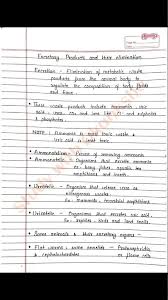 Excretory Products and their elimination
Excretion - Elimination of metabolic waste
products from the animal body to
regulate the composition of body fluids
and tissue.
These waste products include ammonia, uric
acid, urea, CO₂ and ions like Na⁺ and
phosphates.
NOTE: Ammonia is most toxic waste &
uric acid is least toxic
Ammonotelism - Process of excreting ammonia
Ammonotelic - Organisms that excrete ammonia
Ex: bony fishes, aquatic
amphibians and insects
Ureotelic - Organism that release urea as
nitrogenous waste.
Ex: mammals, terrestrial amphibians
Uricotelic - Organisms that excrete uric acid.
Ex: reptiles, birds and land snails.
Some animals & their excretory organs
Flat worms & some annelids - Protonephridia
& cephalochordates or flame cells